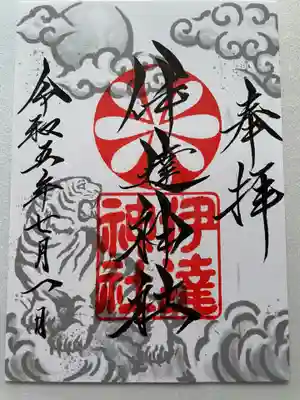 奉拝
伊達神社
伊達
神社
令和五年七月八日